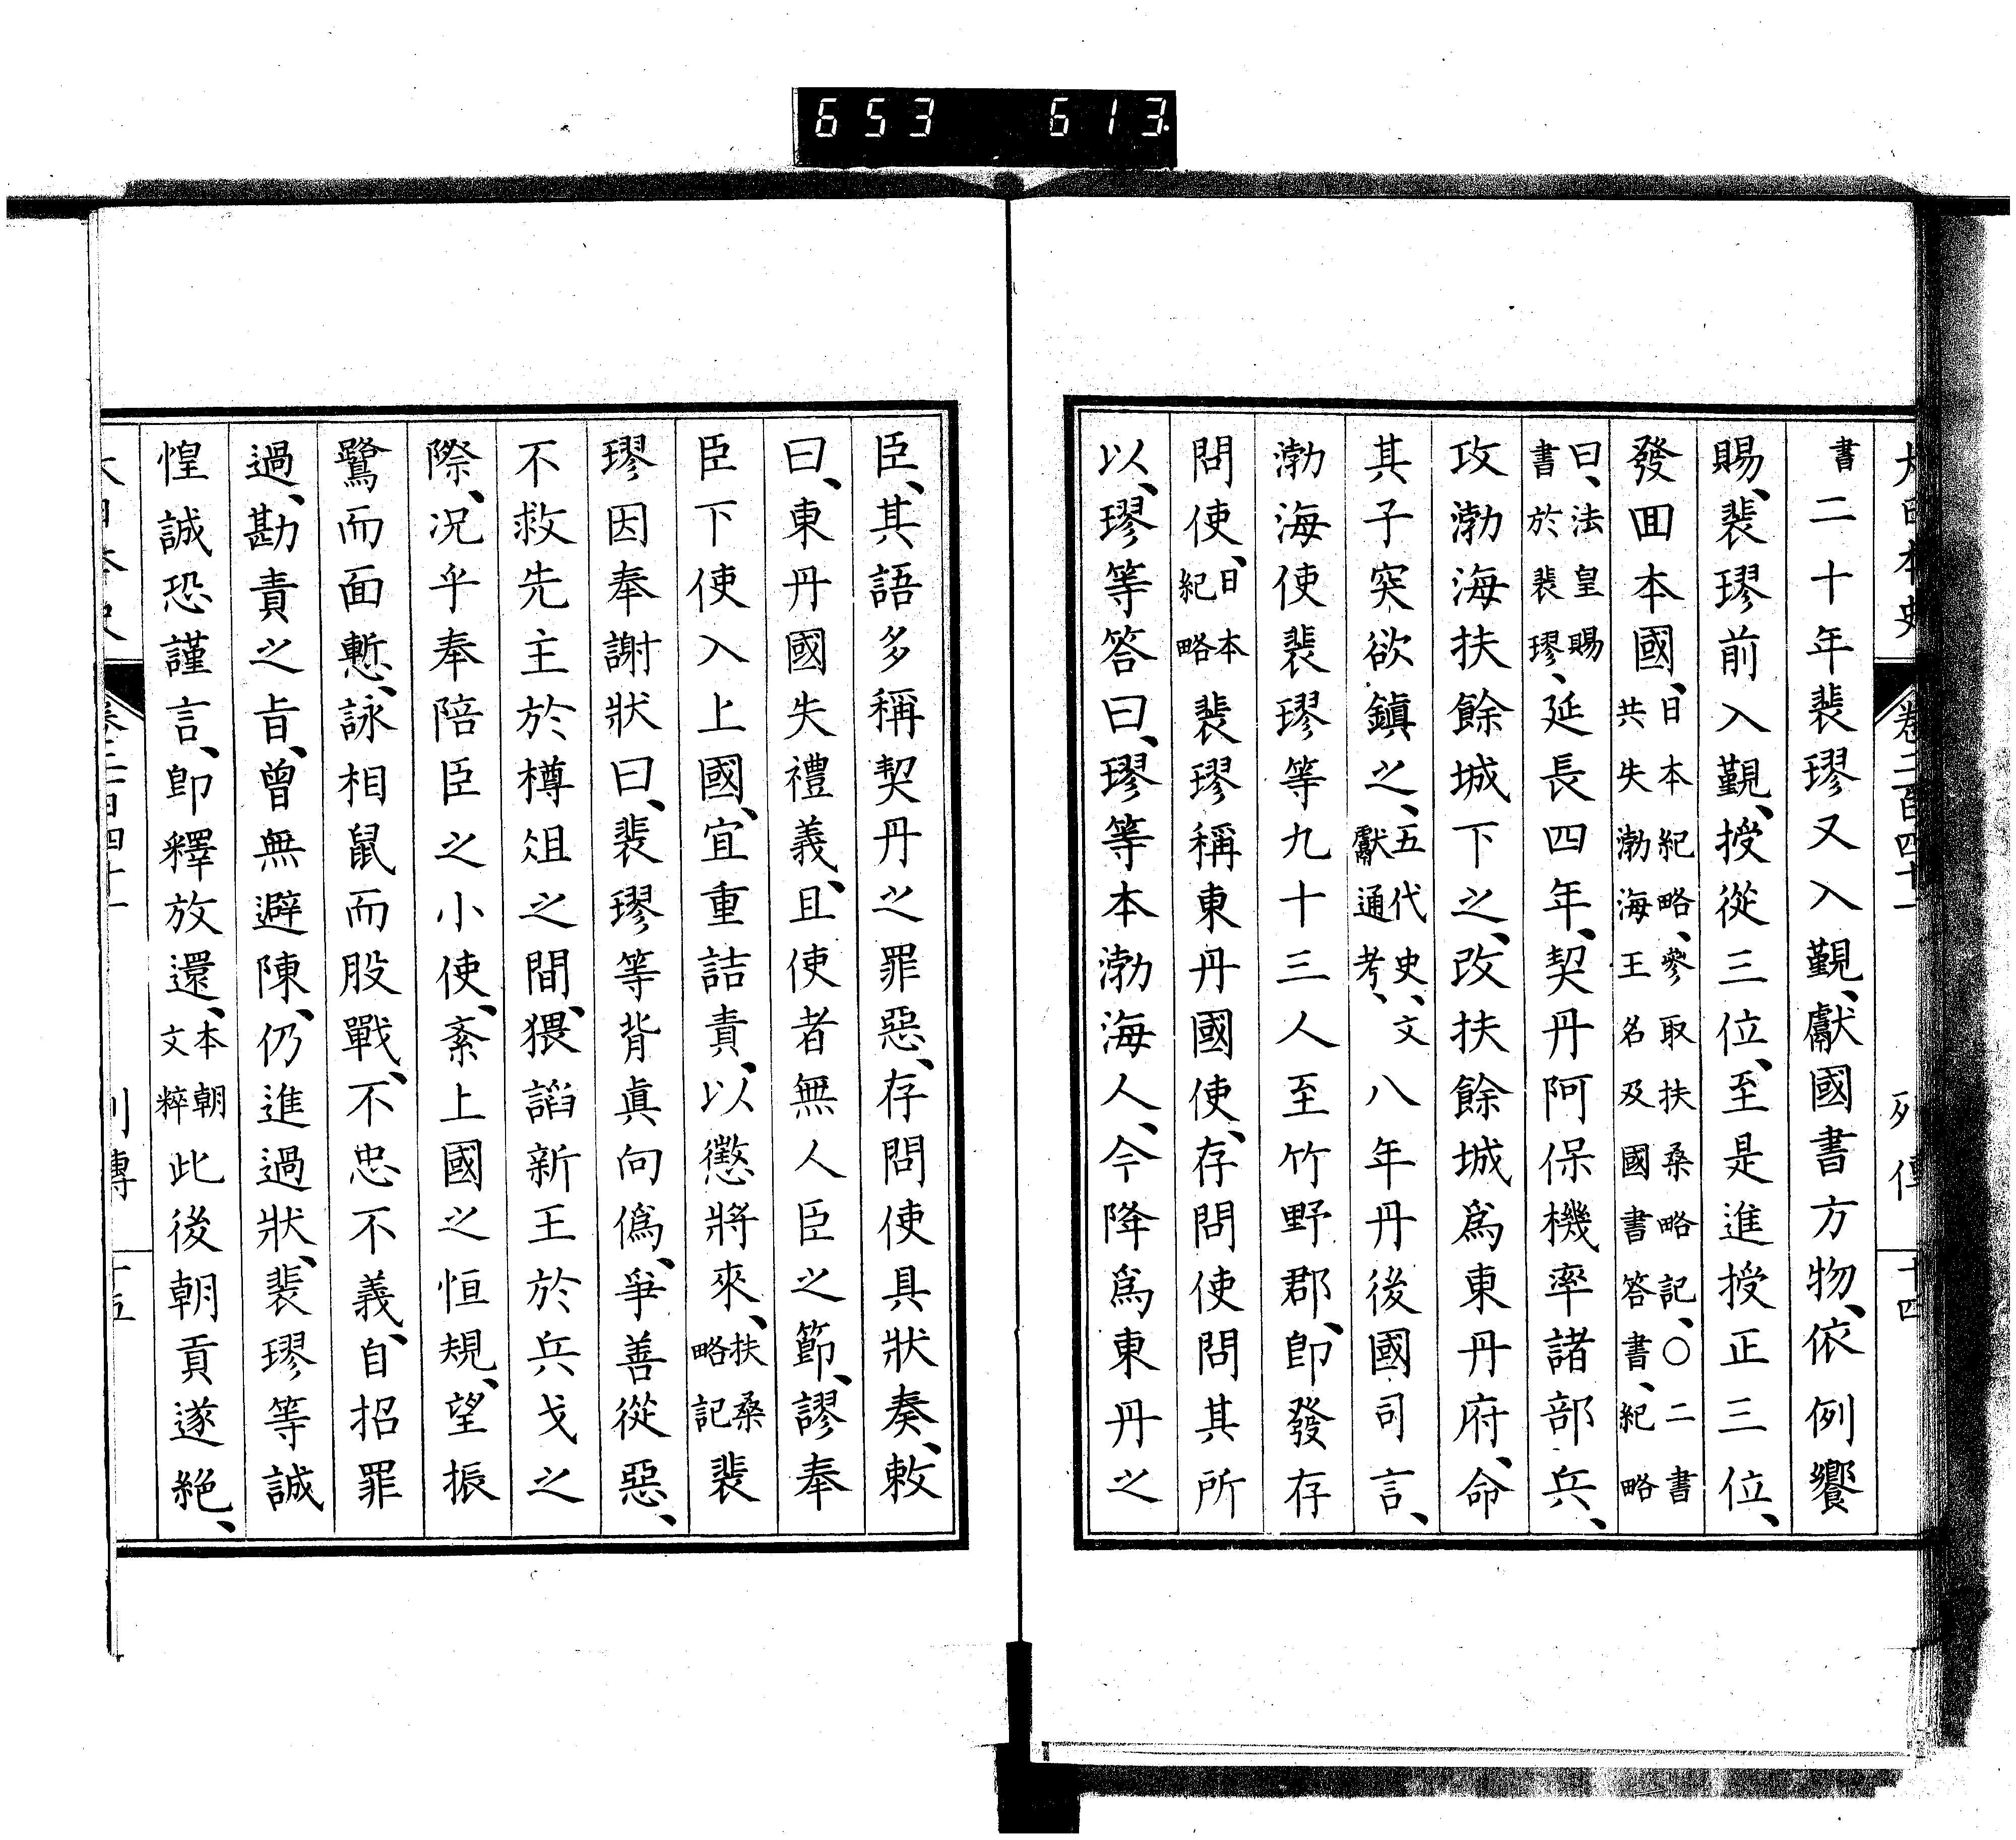 653 613
大日本史 卷二百四十一 列傳 十四
書二十年裴璆又入覲、獻國書方物、依例饗
賜、裴璆前入覲、授從三位、至是進授正三位、
發囬本國、日本紀略、參取扶桑略記、○二書共失渤海王名及國書答書、紀略
曰、法皇賜書於裴璆、延長四年、契丹阿保機率諸部兵、
攻渤海扶餘城下之、改扶餘城爲東丹府、命
其子突欲鎭之、五代史、文獻通考、八年丹後國司言、
渤海使裴璆等九十三人至竹野郡、卽發存
問使、日本紀略裴璆稱東丹國使、存問使問其所
以、璆等答曰、璆等本渤海人、今降爲東丹之
臣、其語多稱契丹之罪惡、存問使具狀奏、敕
曰、東丹國失禮義、且使者無人臣之節、謬奉
臣下使入上國、宜重詰責、以懲將來、扶桑略記裴
璆因奉謝狀曰、裴璆等背眞向僞、爭善從惡、
不救先主於樽俎之間、猥謟新王於兵戈之
際、況乎奉陪臣之小使、紊上國之恒規、望振
鷺而面慙、詠相鼠而股戰、不忠不義、自招罪
過、勘責之旨、曾無避陳、仍進過狀、裴璆等誠
惶誠恐謹言、卽釋放還、本朝文粹此後朝貢遂絕、
大日本史 卷二百四十一 列傳 十五